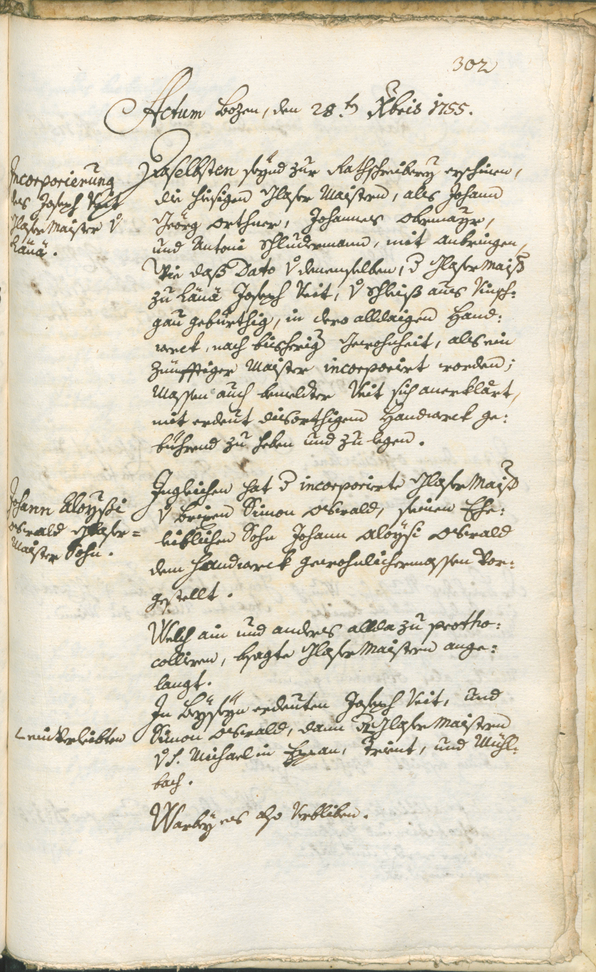 302
Actum Bozen, den 28.t Xbris 1755.
Incorporierung
des Joseph Veit
Glaser Maister v
Länä.
Daselbsten seynd zur Rathschreiberey erschinen,
die hiesigen Glaser Maistern, als Johann
Geörg Orthner, Johannes Obermayr,
und Antoni Schludermann, mit Anbringen,
Wie daß Dato v denenselben, d Glaser Maist
zu Länä Joseph Veit, v Schleiß aus Vinsch:
gau gebürthig, in dero alldaigen Hand:
werck, nach bishörig Gewohnheit, als ein
zunfftiger Maister incorporirt worden;
Massen auch bemeldter Veit sich anerklärt,
mit erdeut diesorthigem Handwerck ge:
bührend zu heben und zu legen.
Johann Aloysi
Oswald Glaser=
Maister Sohn.
Ingleichen hat d incorporierte Glaser Maist
v Brixen Simon Oswald, seinen Ehe:
leiblichen Sohn Johann Aloysi Oswald
dem Handwerck gewohnlichermassen vor:
gestellt.
Welch ain und anders allda zu protho:
colliren, besagte Glaser Maistern ange:
langt.
In Beyseyn erdeuten Joseph Veit, und
Simon Oswald, dann d Glaser Maistern
einverleibten
v S. Michael in Eppan, Trient, und Mühl:
bach.
Warbey es also verbliben.